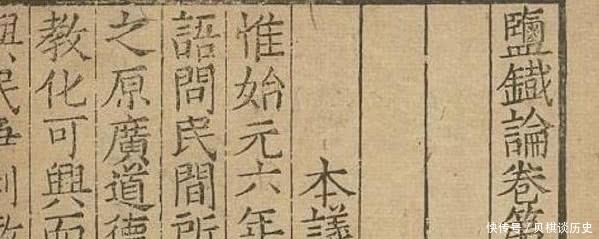 鹽鐵論卷第
本議
惟始元六年
語問民間所
之原廣道德
教化可興而
與民爭利
快传号/贝棋谈历史